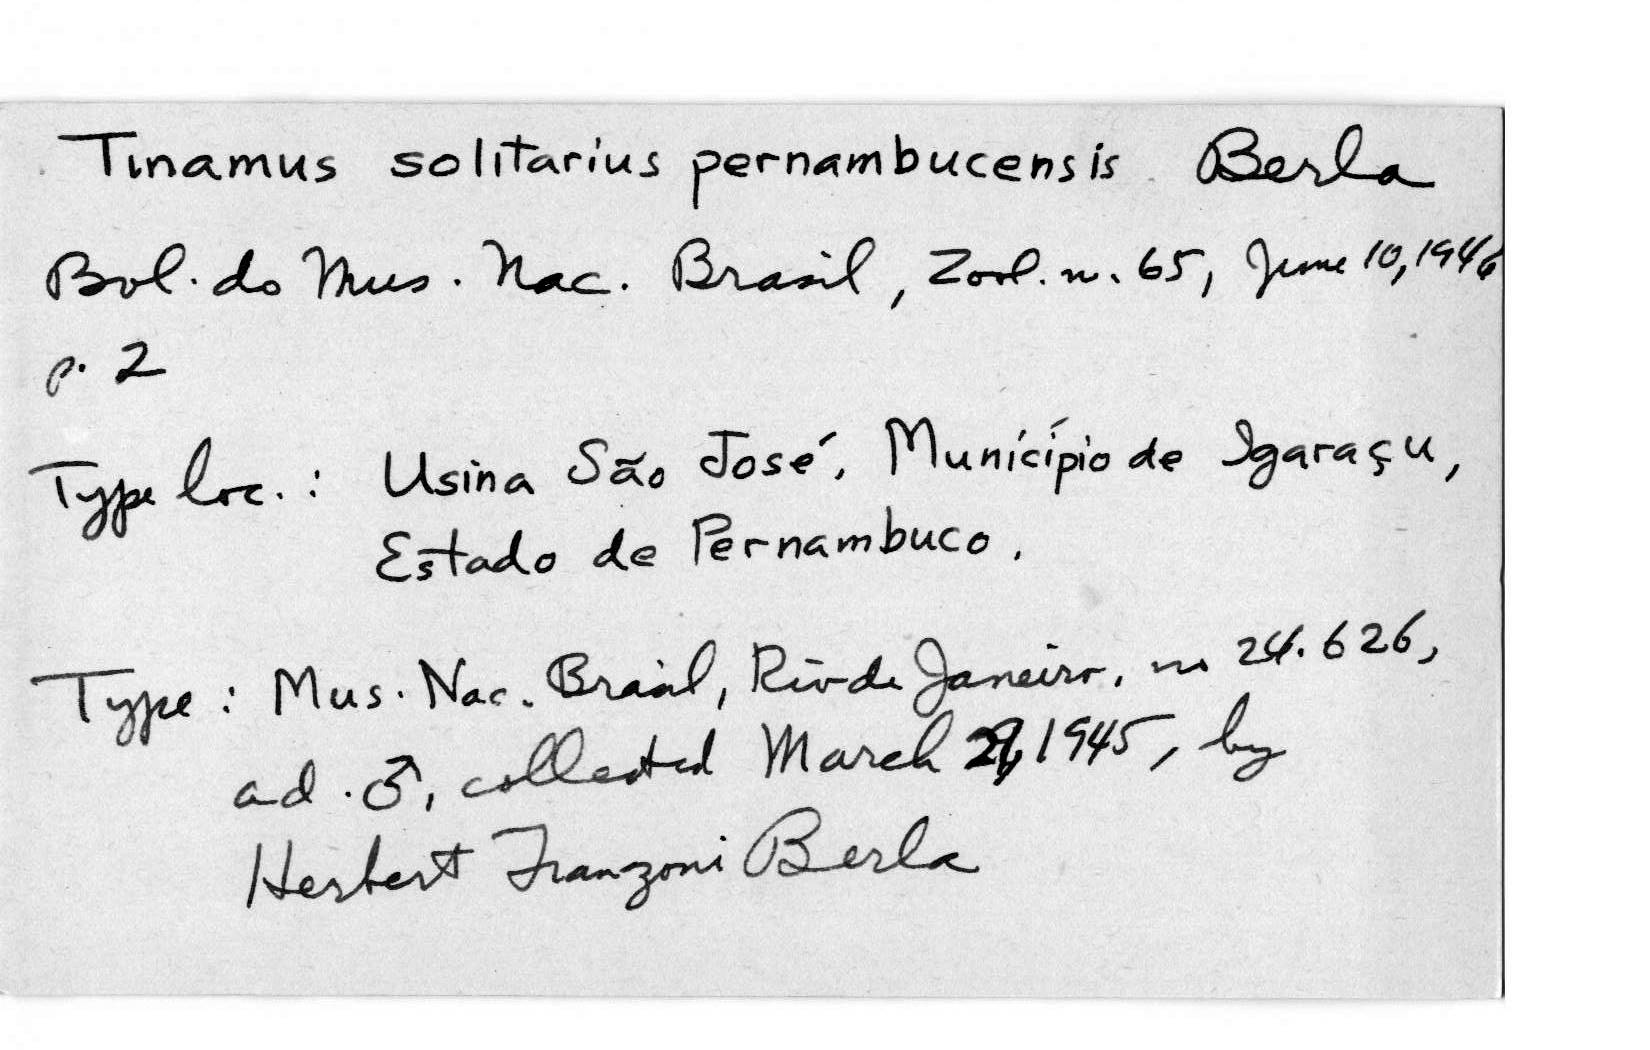 Tinamus solitarius pernambucensis Berla
Bol. do Mus. Nac. Brasil, Zool. n. 65, June 10, 1946
p. 2
Type loc.: Usina São José, Município de Igaraçu,
Estado de Pernambuco.
Type: Mus. Nac. Brasil, Rio de Janeiro, no 24.626,
ad. ♂, collected March 1945, by
Herbert Franzoni Berla